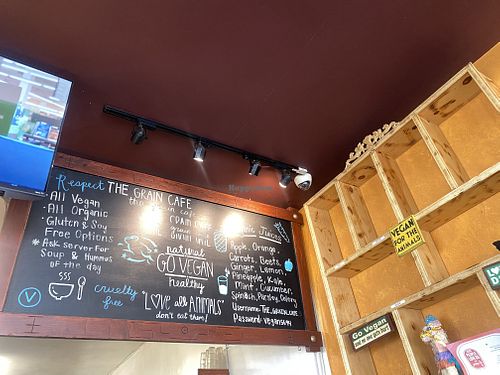 Respect THE GRAIN CAFE
· All Vegan
· All Organic
· Gluten & Soy
Free Options
* Ask Server For
Soup & Hummus
of the day
V
cruelty
free
the grain cafe
GRAIN CAFE
natural
GO VEGAN
healthy
"LOVE all ANIMALS"
don't eat them!
Organic Juices
Apple, Orange,
Carrots, Beets,
Ginger, Lemon,
Pineapple, Kale,
Mint, Cucumber,
Spinach, Parsley, Celery
Username: THE_GRAIN_CAFE
VEGAN
FOR THE
ANIMALS
Go Vegan
HappyCow